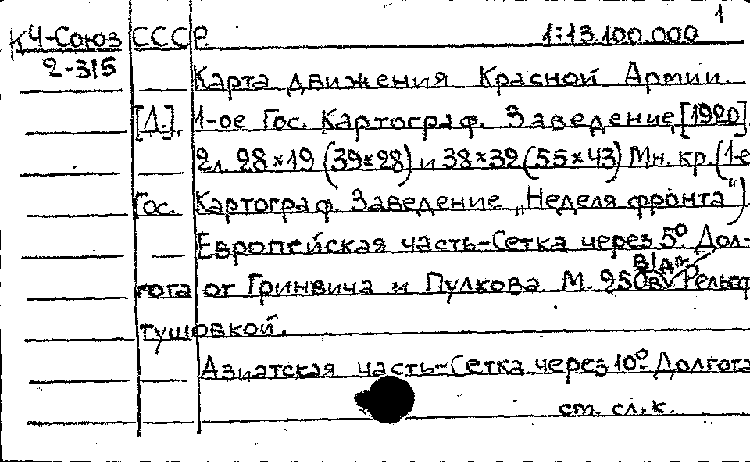 1
КЧ-Союз СССР 1:13.100.000
2-315 Карта движения Красной Армии.
[Л.], 1-ое Гос. Картограф. Заведение, [1920].
2л. 28×19 (39×28) и 38×32 (55×43) Мн. кр. (1-е
Гос. Картограф. Заведение „Неделя фронта")
Европейская часть-Сетка через 5° Дол-
гота от Гринвича и Пулкова М. 250в/дм Рельеф
тушовкой.
Азиатская часть-Сетка через 10° Долгота
ст. сл. к.